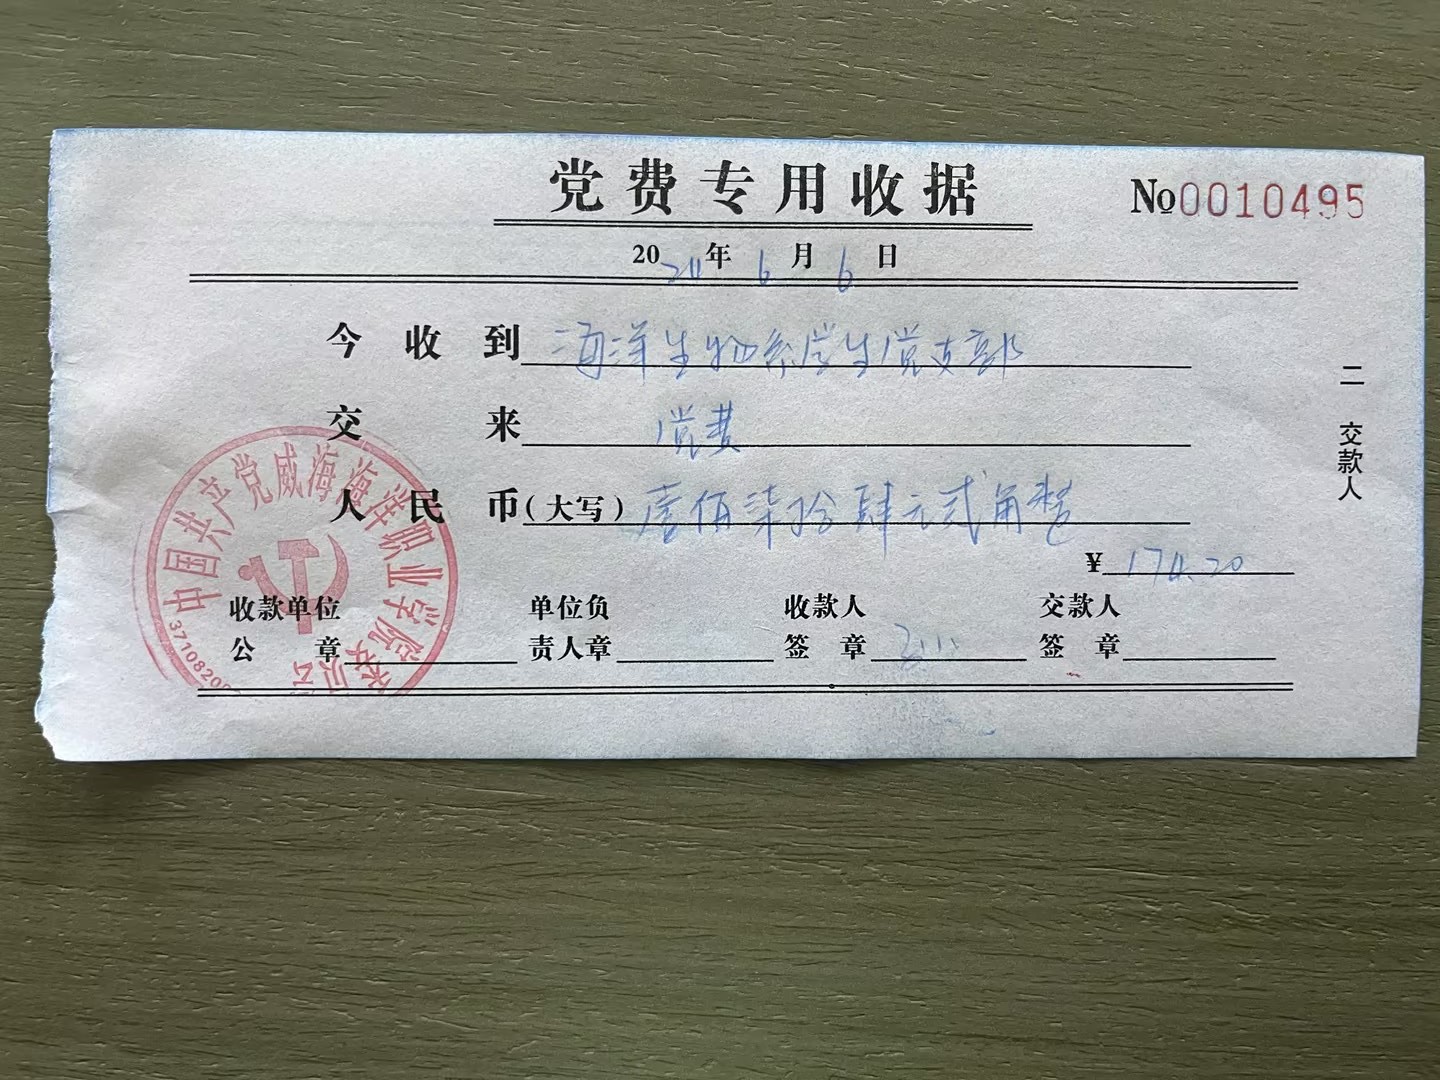 党费专用收据
No0010495
2024年6月6日
今收到 海洋生物系学生党支部
交来 党费
人民币(大写) 壹佰柒拾肆元贰角整
¥ 174.20
收款单位公章
单位负责人章
收款人签章
交款人签章
二 交款人
中国共产党威海海洋职业学院委员会
3710820